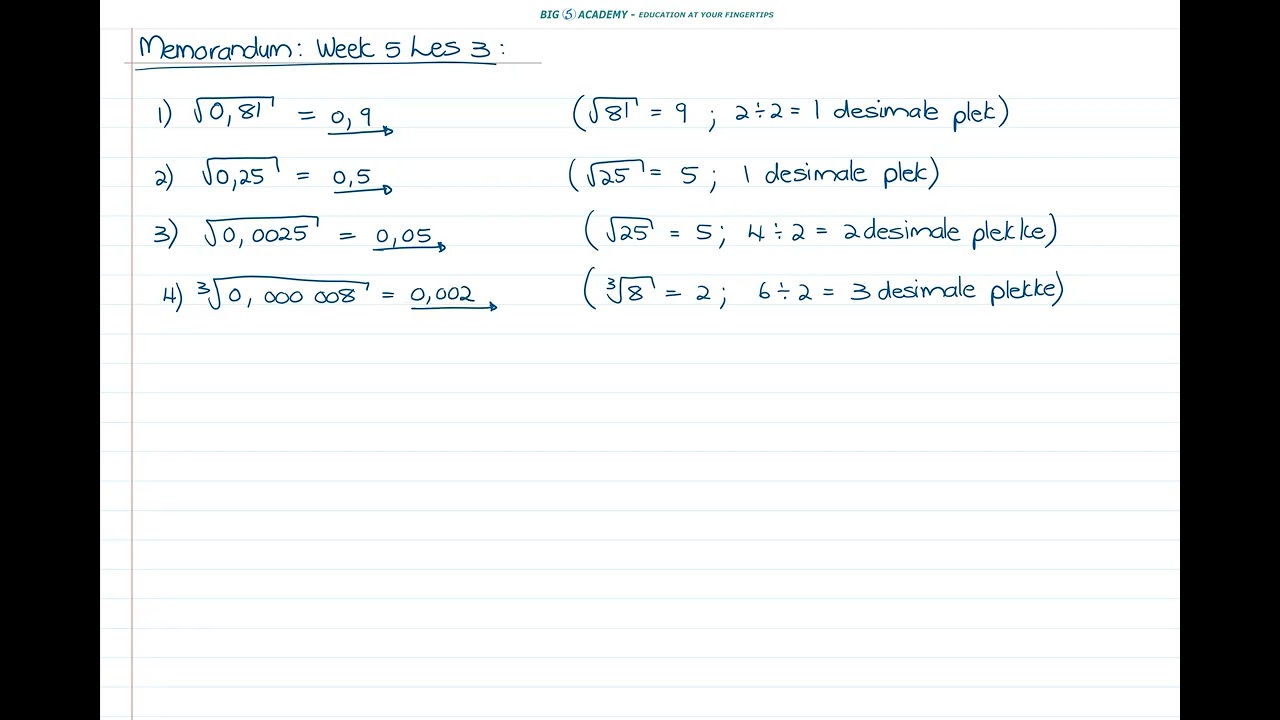 BIG 5 ACADEMY - EDUCATION AT YOUR FINGERTIPS
Memorandum: Week 5 Les 3:
1) √0,81 = 0,9 (√81 = 9 ; 2÷2 = 1 desimale plek)
2) √0,25 = 0,5 (√25 = 5 ; 1 desimale plek)
3) √0,0025 = 0,05 (√25 = 5 ; 4÷2 = 2 desimale plekke)
4) ³√0,000 008 = 0,002 (³√8 = 2 ; 6÷2 = 3 desimale plekke)